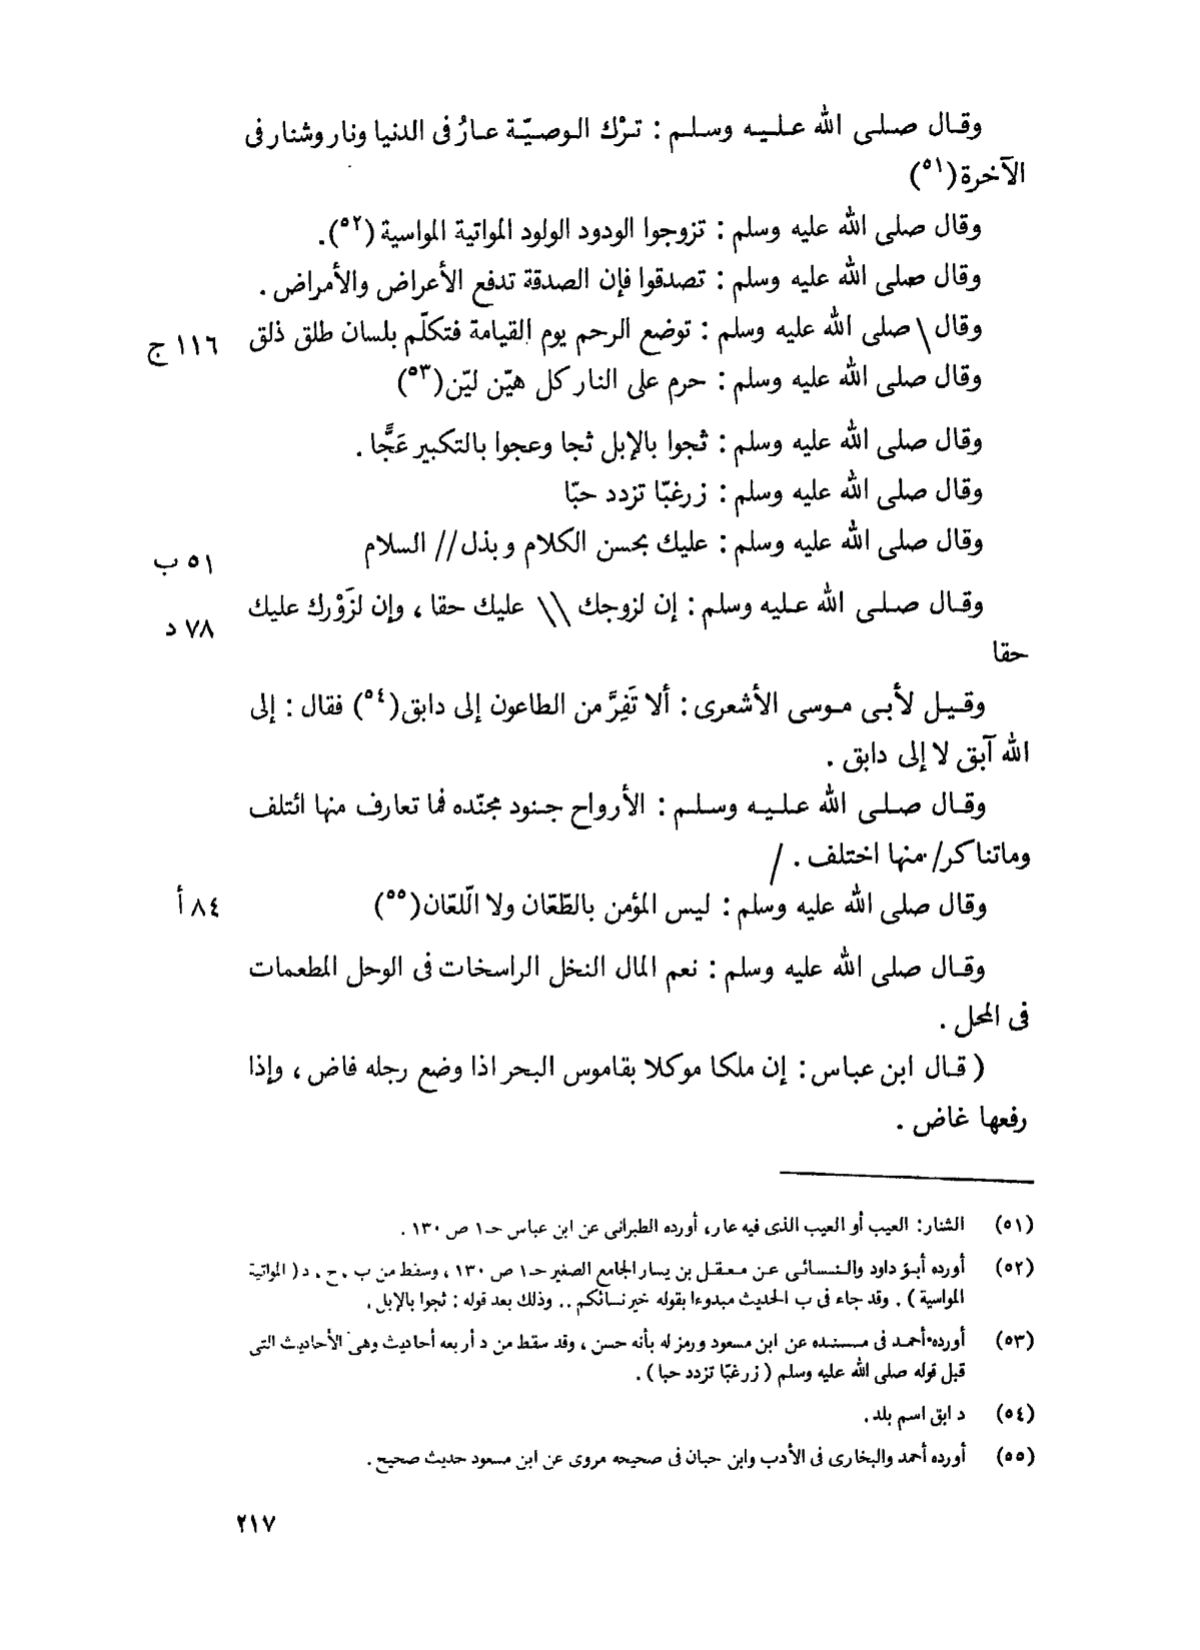 وقال صلى الله عليه وسلم : ترْك الوصيّة عارُ فى الدنيا ونار وشنار فى
الآخرة (٥١)
وقال صلى الله عليه وسلم : تزوجوا الودود الولود المواتية المواسية (٥٢).
وقال صلى الله عليه وسلم : تصدقوا فإن الصدقة تدفع الأعراض والأمراض .
وقال \ صلى الله عليه وسلم : توضع الرحم يوم القيامة فتكلّم بلسان طلق ذلق ١١٦ ج
وقال صلى الله عليه وسلم : حرم على النار كل هيّن ليّن (٥٣)
وقال صلى الله عليه وسلم : ثجوا بالإبل ثجا وعجوا بالتكبير عَجًّا .
وقال صلى الله عليه وسلم : زر غبّا تزدد حبّا
وقال صلى الله عليه وسلم : عليك بحسن الكلام وبذل // السلام ٥١ ب
وقال صلى الله عليه وسلم : إن لزوجك \\ عليك حقا ، وإن لزَوْرك عليك ٧٨ د
حقا
وقيل لأبى موسى الأشعرى : ألا تَفِرَّ من الطاعون إلى دابق (٥٤) فقال : إلى
الله آبق لا إلى دابق .
وقال صلى الله عليه وسلم : الأرواح جنود مجنّده فما تعارف منها ائتلف
وماتناكر / منها اختلف . /
وقال صلى الله عليه وسلم : ليس المؤمن بالطّعّان ولا الّلعّان (٥٥) ٨٤ أ
وقال صلى الله عليه وسلم : نعم المال النخل الراسخات فى الوحل المطعمات
فى المحل .
( قال ابن عباس : إن ملكا موكلا بقاموس البحر اذا وضع رجله فاض ، وإذا
رفعها غاض .
(٥١) الشنار : العيب أو العيب الذى فيه عار ، أورده الطبرانى عن ابن عباس حـ١ ص ١٣٠ .
(٥٢) أورده أبو داود والنسائى عن معقل بن يسار الجامع الصغير حـ١ ص ١٣٠ ، وسقط من ب . ح . د ( المواتية
المواسية ) . وقد جاء فى ب الحديث مبدوءا بقوله خير نسائكم .. وذلك بعد قوله : ثجوا بالإبل .
(٥٣) أورده أحمد فى مسنده عن ابن مسعود ورمز له بأنه حسن ، وقد سقط من د أربعه أحاديث وهى الأحاديث التى
قبل قوله صلى الله عليه وسلم ( زر غبّا تزدد حبا ) .
(٥٤) دابق اسم بلد .
(٥٥) أورده أحمد والبخارى فى الأدب وابن حبان فى صحيحه مروى عن ابن مسعود حديث صحيح .
٢١٧